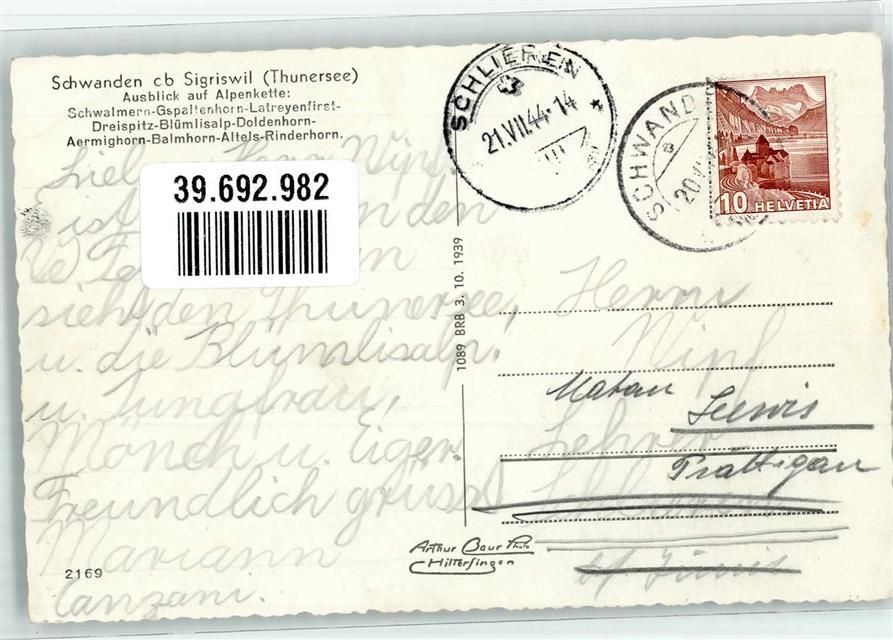 Schwanden ob Sigriswil (Thunersee)
Ausblick auf Alpenkette:
Schwalmern-Gspaltenhorn-Latreyenfirst-
Dreispitz-Blümlisalp-Doldenhorn-
Aermighorn-Balmhorn-Altels-Rinderhorn.
39.692.982
Herr Wipf
ist den
sieht den Thunersee,
u. die Blümlisalp.
u. Jungfrau,
Mönch u. Eiger.
Freundlich grüsst
Mariann
Canzani.
2169
1089 BRB 3. 10. 1939
Arthur Baur Photo
Hilterfingen
SCHLIEREN
21.VII.44-14
SCHWAND
20.V
10 HELVETIA
Herrn
Wipf
Seewis
Lehrer
Prättigau
Schlieren
b/ Zürich